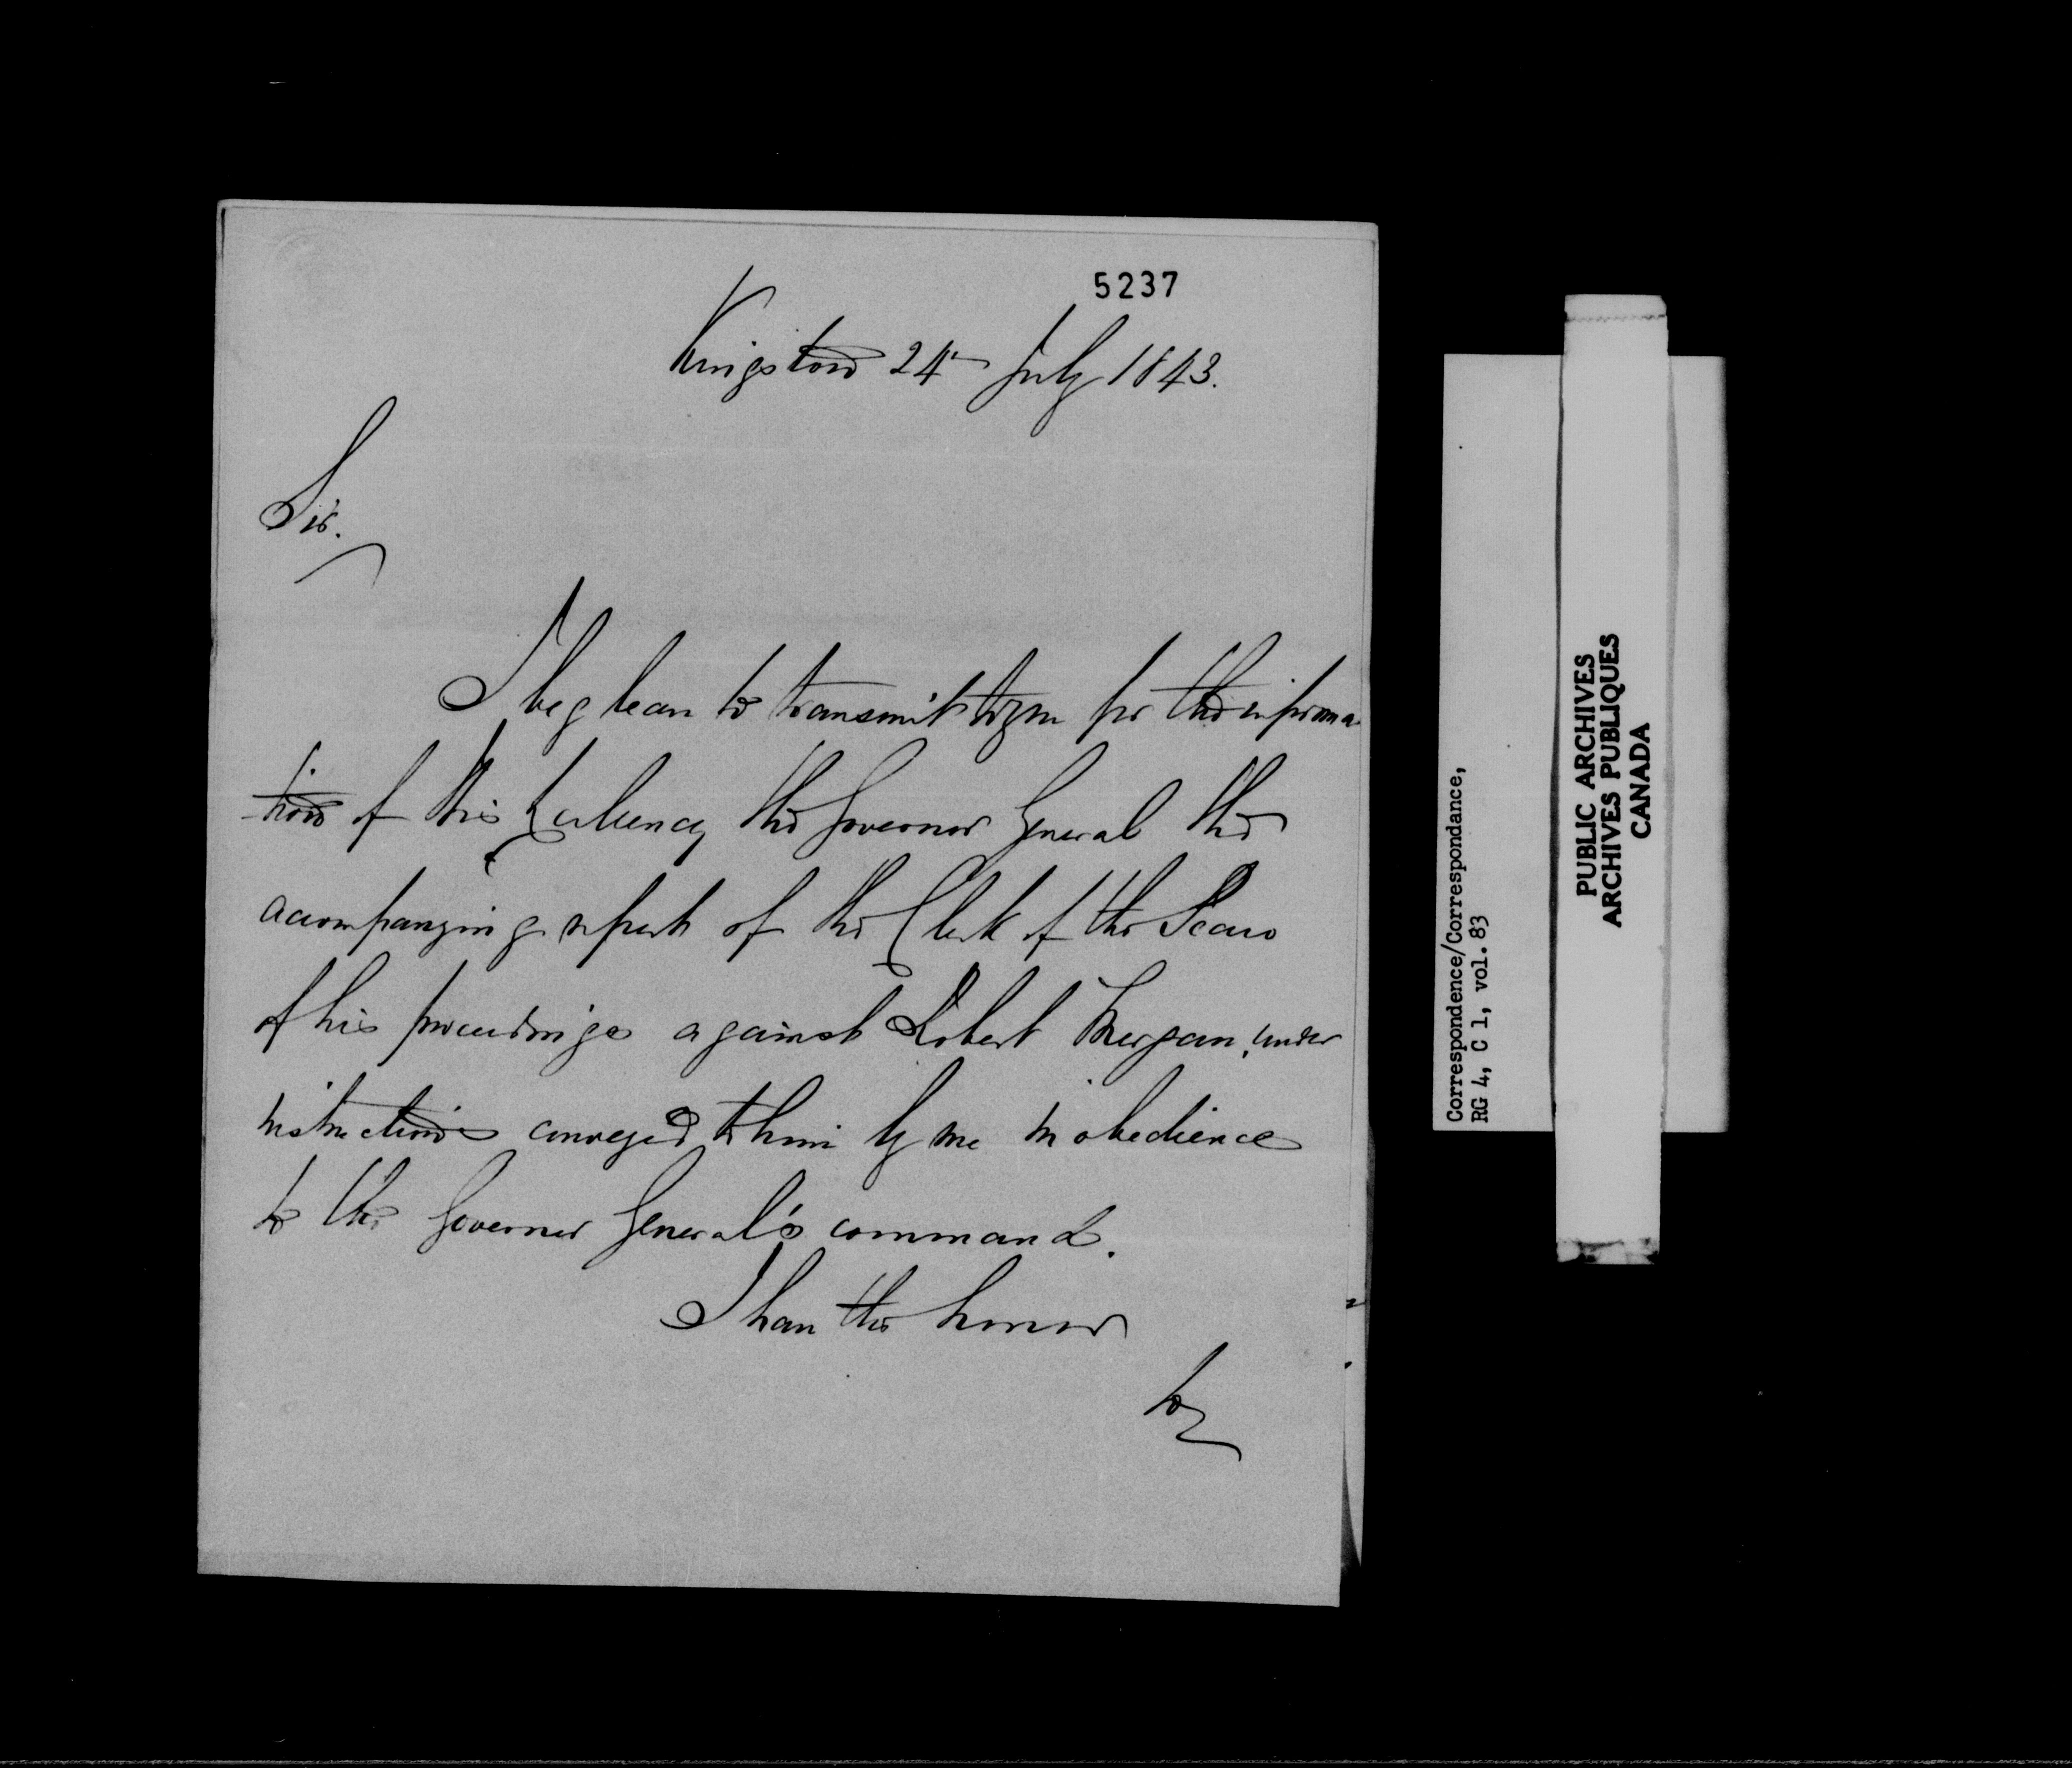 5237
Kingston 24th July 1843.
Sir.
I beg leave to transmit to you for the informa
tion of His Excellency the Governor General the
accompanying report of the Clerk of the Peace
of his proceedings against Robert under
instructions conveyed to him by me in obedience
to the Governor General's command.
I have the honor
to
Correspondence/Correspondance,
RG 4, C 1, vol. 83
PUBLIC ARCHIVES
ARCHIVES PUBLIQUES
CANADA